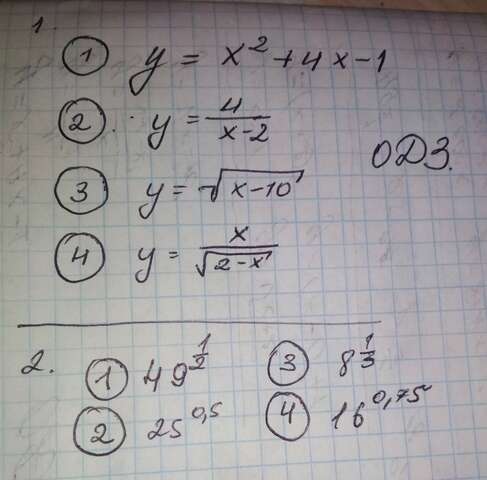 1.
① y = x² + 4x - 1
② y = 4/(x-2)
ОДЗ.
③ y = √(x-10)
④ y = x/√(2-x)
2. ① 49^(1/2) ③ 8^(1/3)
② 25^0,5 ④ 16^0,75